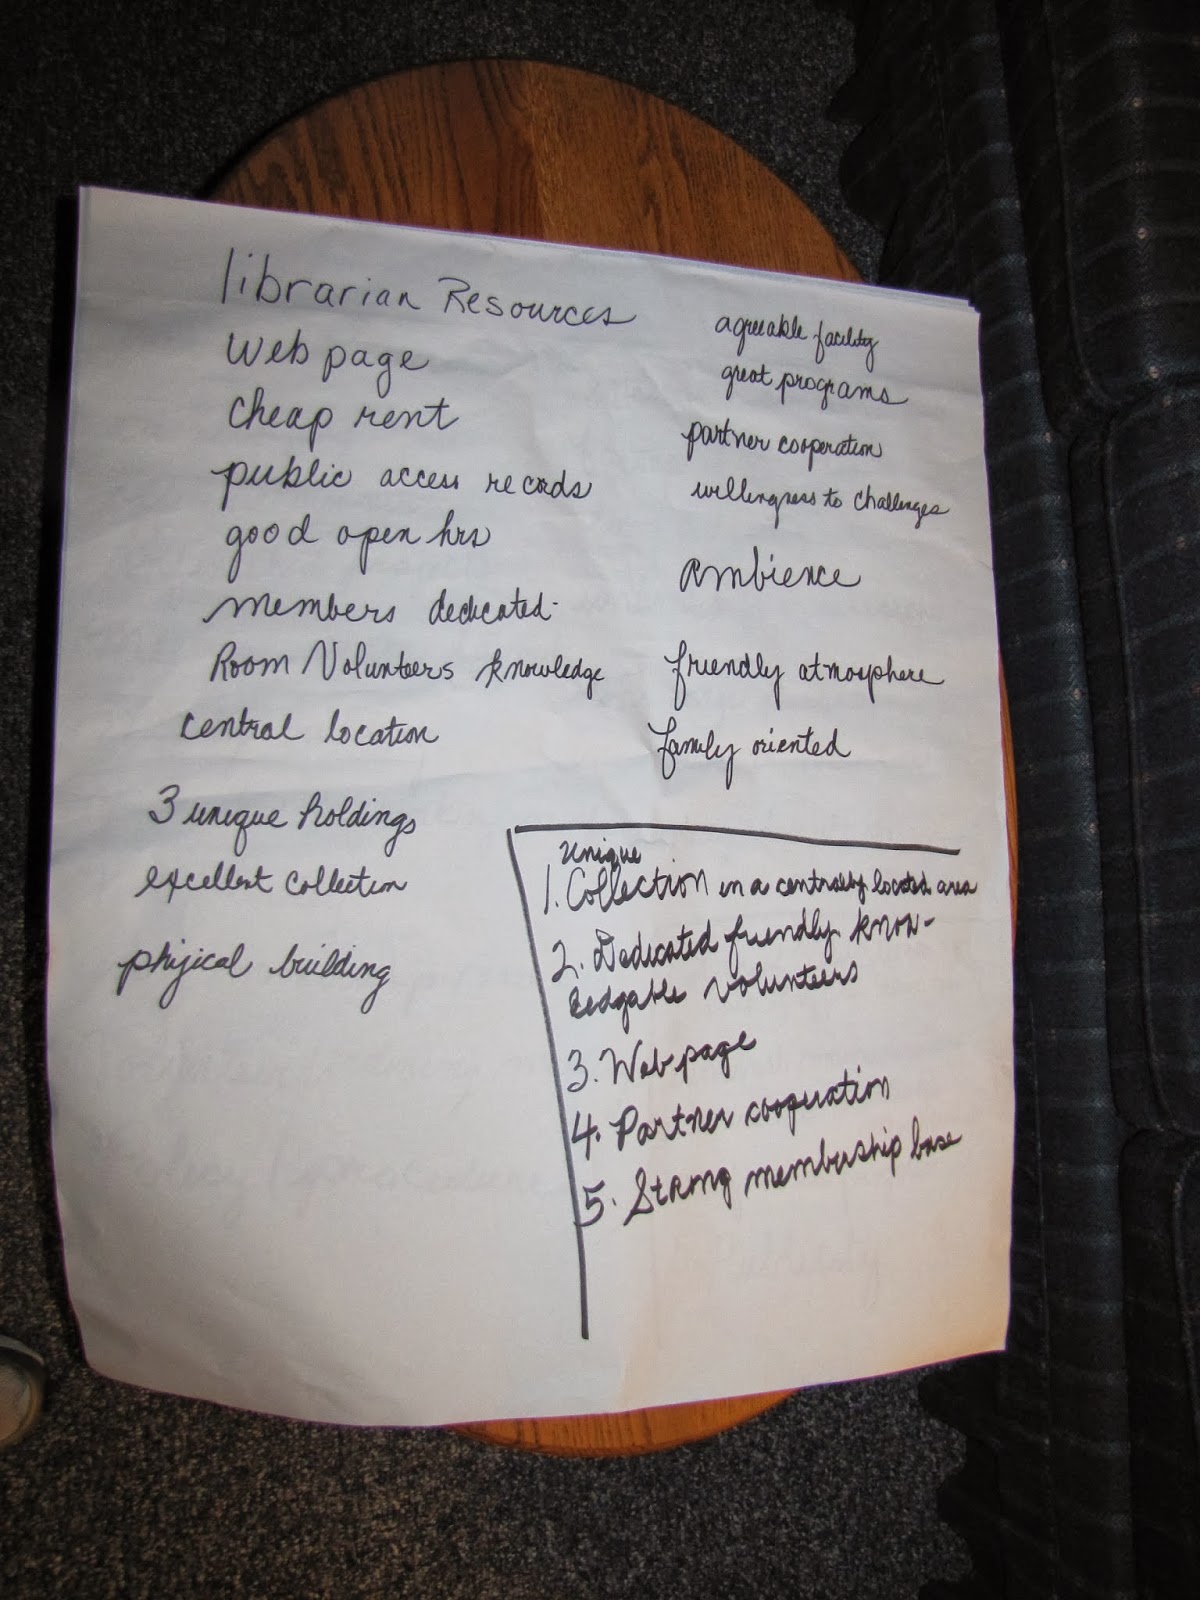 librarian Resources
Web page
Cheap rent
public access records
good open hrs
members dedicated-
Room Volunteers knowledge
central location
3 unique holdings
excellent collection
phyical building
agreeable facility
great programs
partner cooperation
willingness to challenges
ambience
friendly atmosphere
family oriented
unique
1. Collection in a centrally located area
2. Dedicated friendly know-
ledgable volunteers
3. Web page
4. Partner cooperation
5. Strong membership base